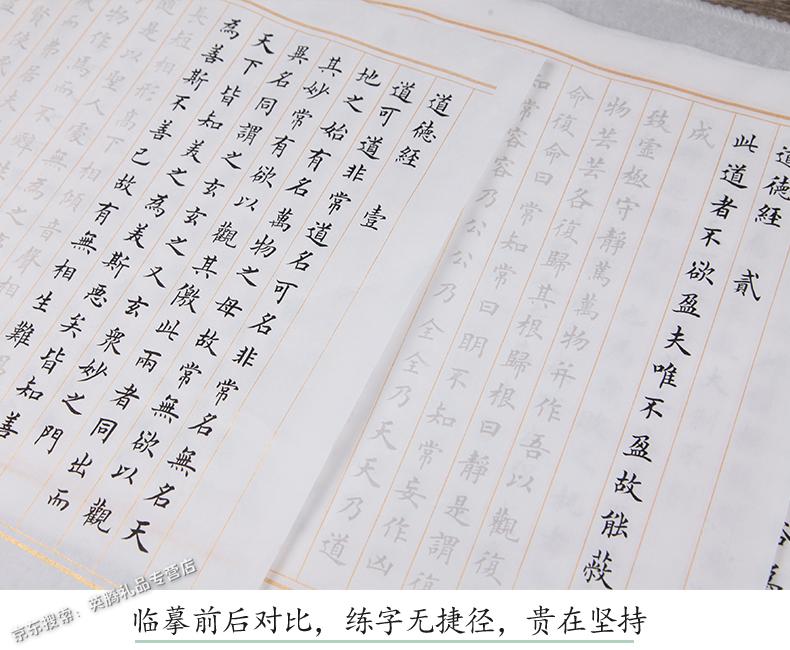 道德經 貳
此道者不欲盈夫唯不盈故能蔽
成
致虛極守靜篤萬物并作吾以觀復
物芸芸各復歸其根歸根曰靜是謂復
命復命曰常知常曰明不知常妄作凶
知常容容乃公公乃全全乃天天乃道
道德經 壹
道可道非常道名可名非常名無名天
地之始有名萬物之母故常無欲以觀
其妙常有欲以觀其徼此兩者同出而
異名同謂之玄玄之又玄衆妙之門
天下皆知美之為美斯惡矣皆知善
為善斯不善已故有無相生難
長短相形高下相傾音聲相
京东搜索：英腾礼品专营店
临摹前后对比，练字无捷径，贵在坚持